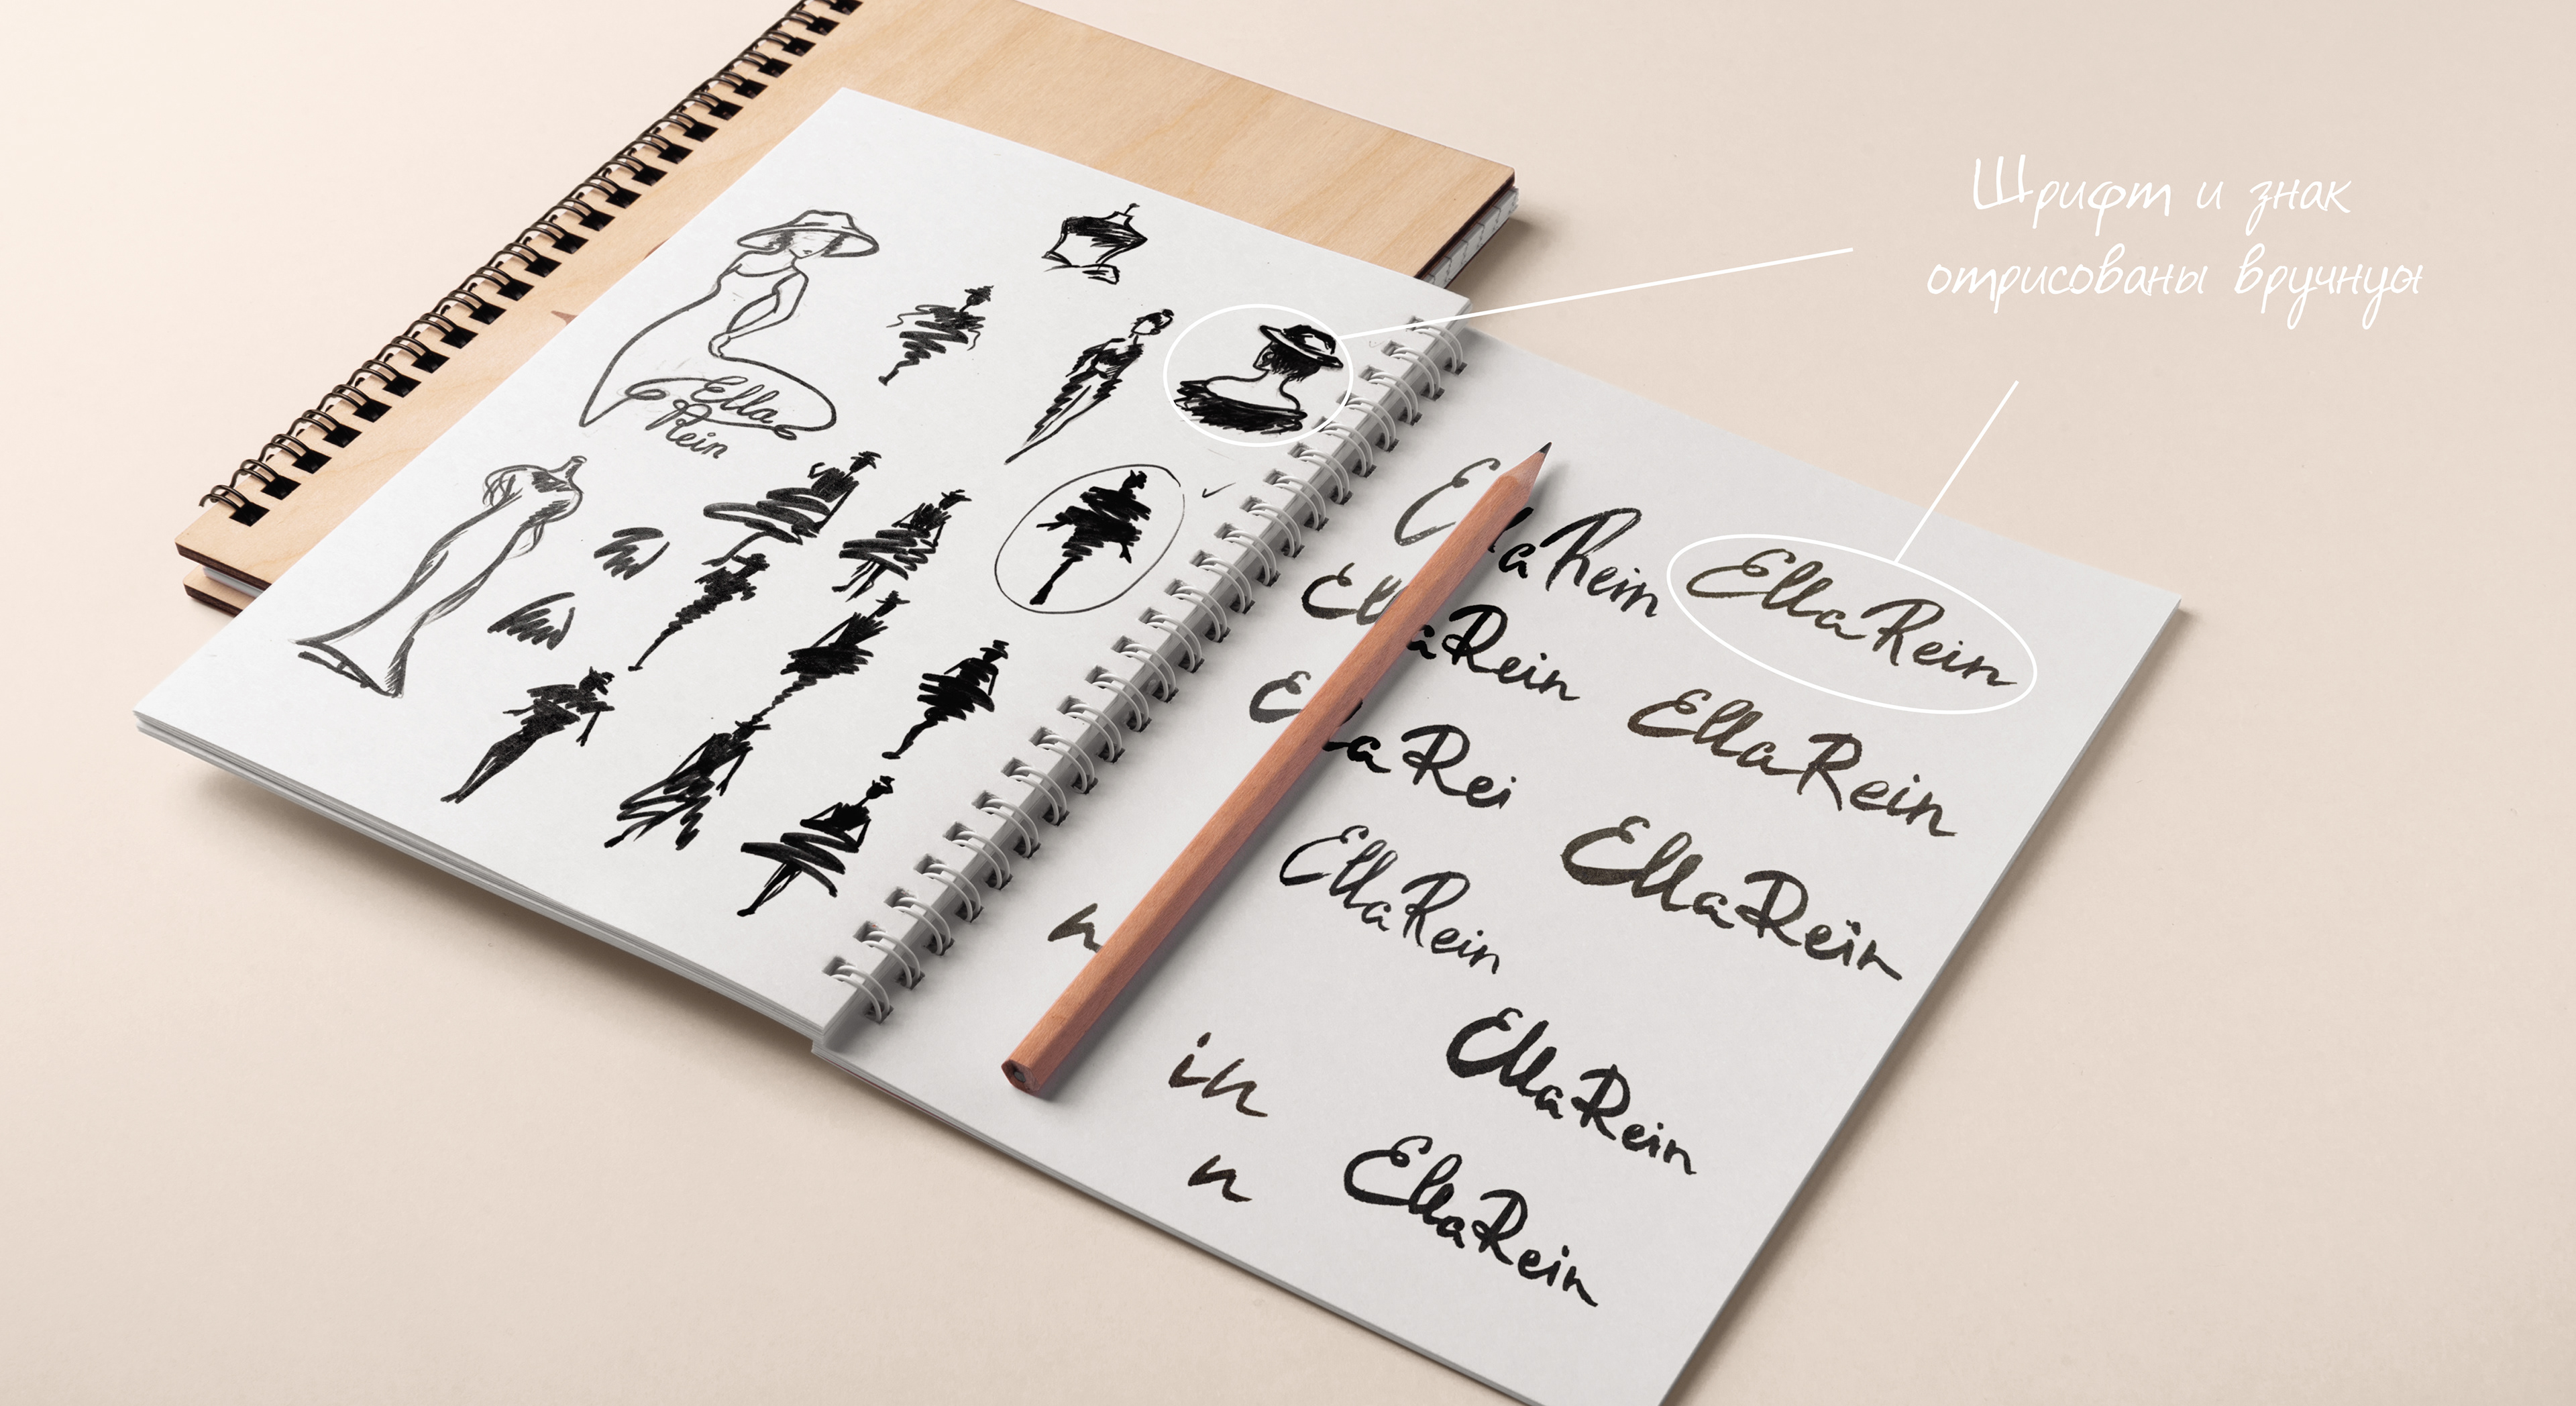 Шрифт и знак
отрисованы вручную
Ella
Rein
Ella Rein
Ella Rein
Ella Rei
Ella Rein
n
in
n
Ella Rein
Ella Rein
Ella Rein
Ella Rein
Ella Rein